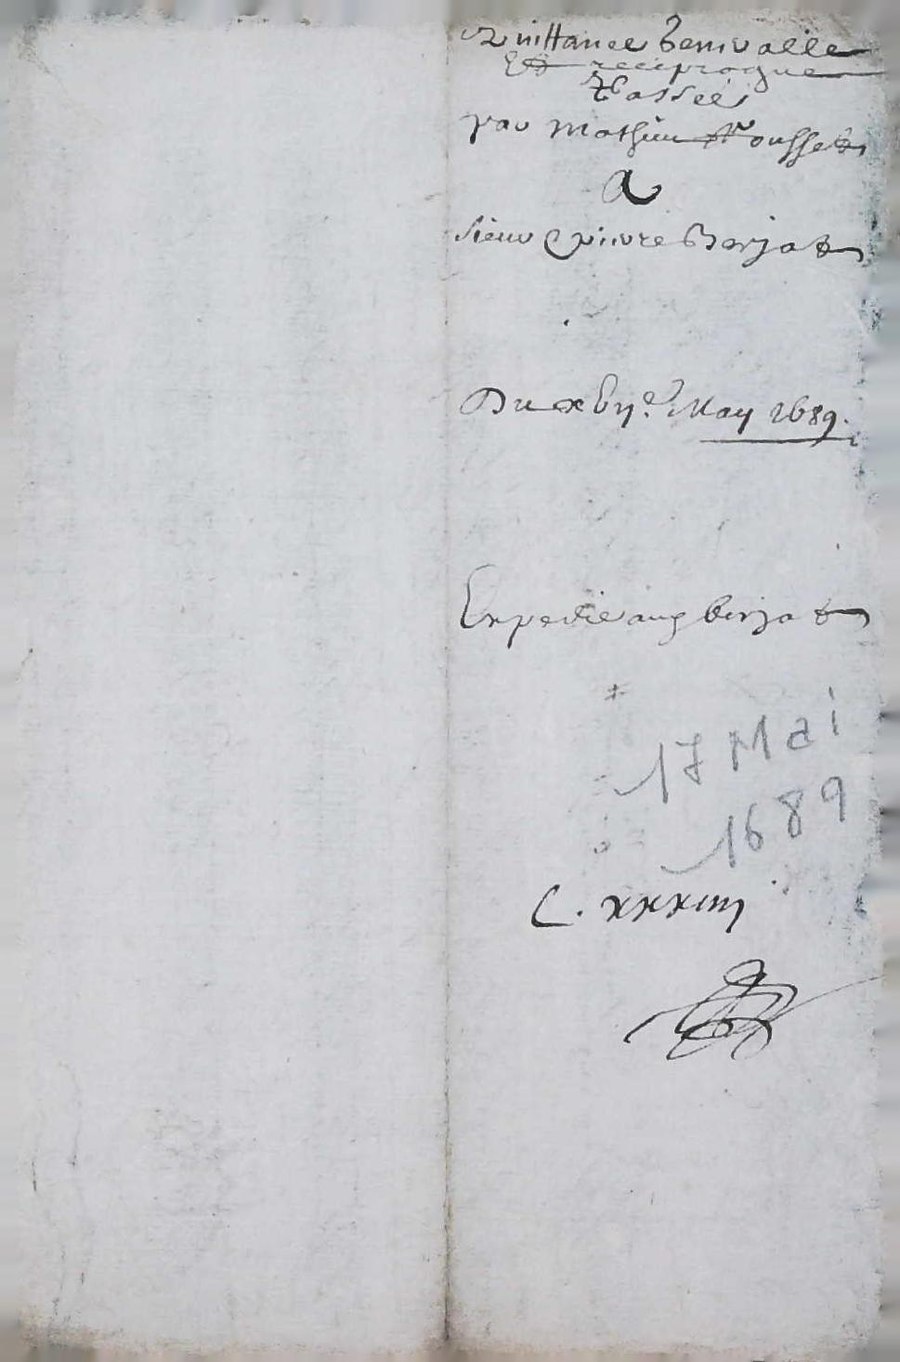 Quittance Generalle
Et reciproque
Passée
par Mathieu Rousset
A
Sieur Pierre Berjat
Du xvije. May 1689.
Expedié aud berjat
17 Mai
1689
C. xxxiiij